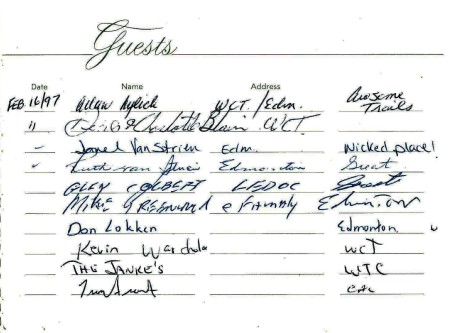 Guests
Date Name Address
FEB 16/97 WCT./Edm. Awesome Trails
" Denis & Charlotte Blain WCT.
- Janel VanStrien Edm. Wicked place!
Ruth van Edmonton Great
GLEN COLBERT LEDUC Great
Mike & Family Edmonton
Don Lokken Edmonton
Kevin WCT
THE JANKE'S WTC